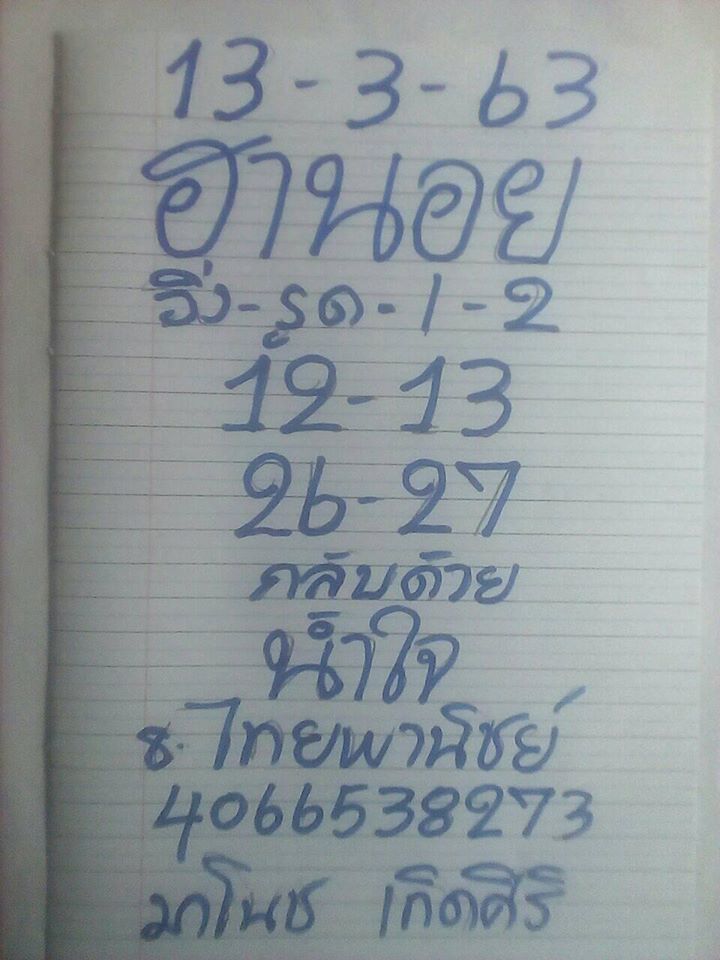 13-3-63
ฮานอย
วิ่ง-รูด-1-2
12-13
26-27
กลับด้วย
น้ำใจ
ธ.ไทยพานิชย์
4066538273
มาโนช เกิดศิริ